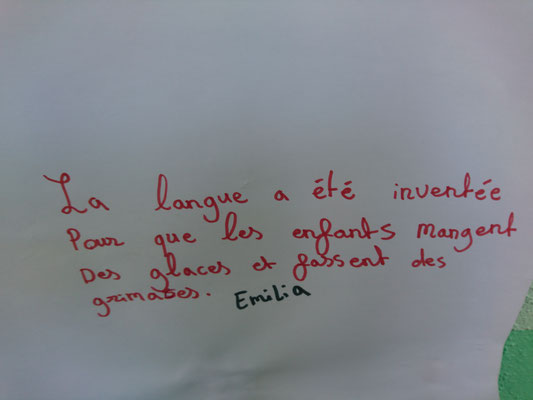 La langue a été inventée
Pour que les enfants mangent
Des glaces et fassent des
grimaces. Emilia